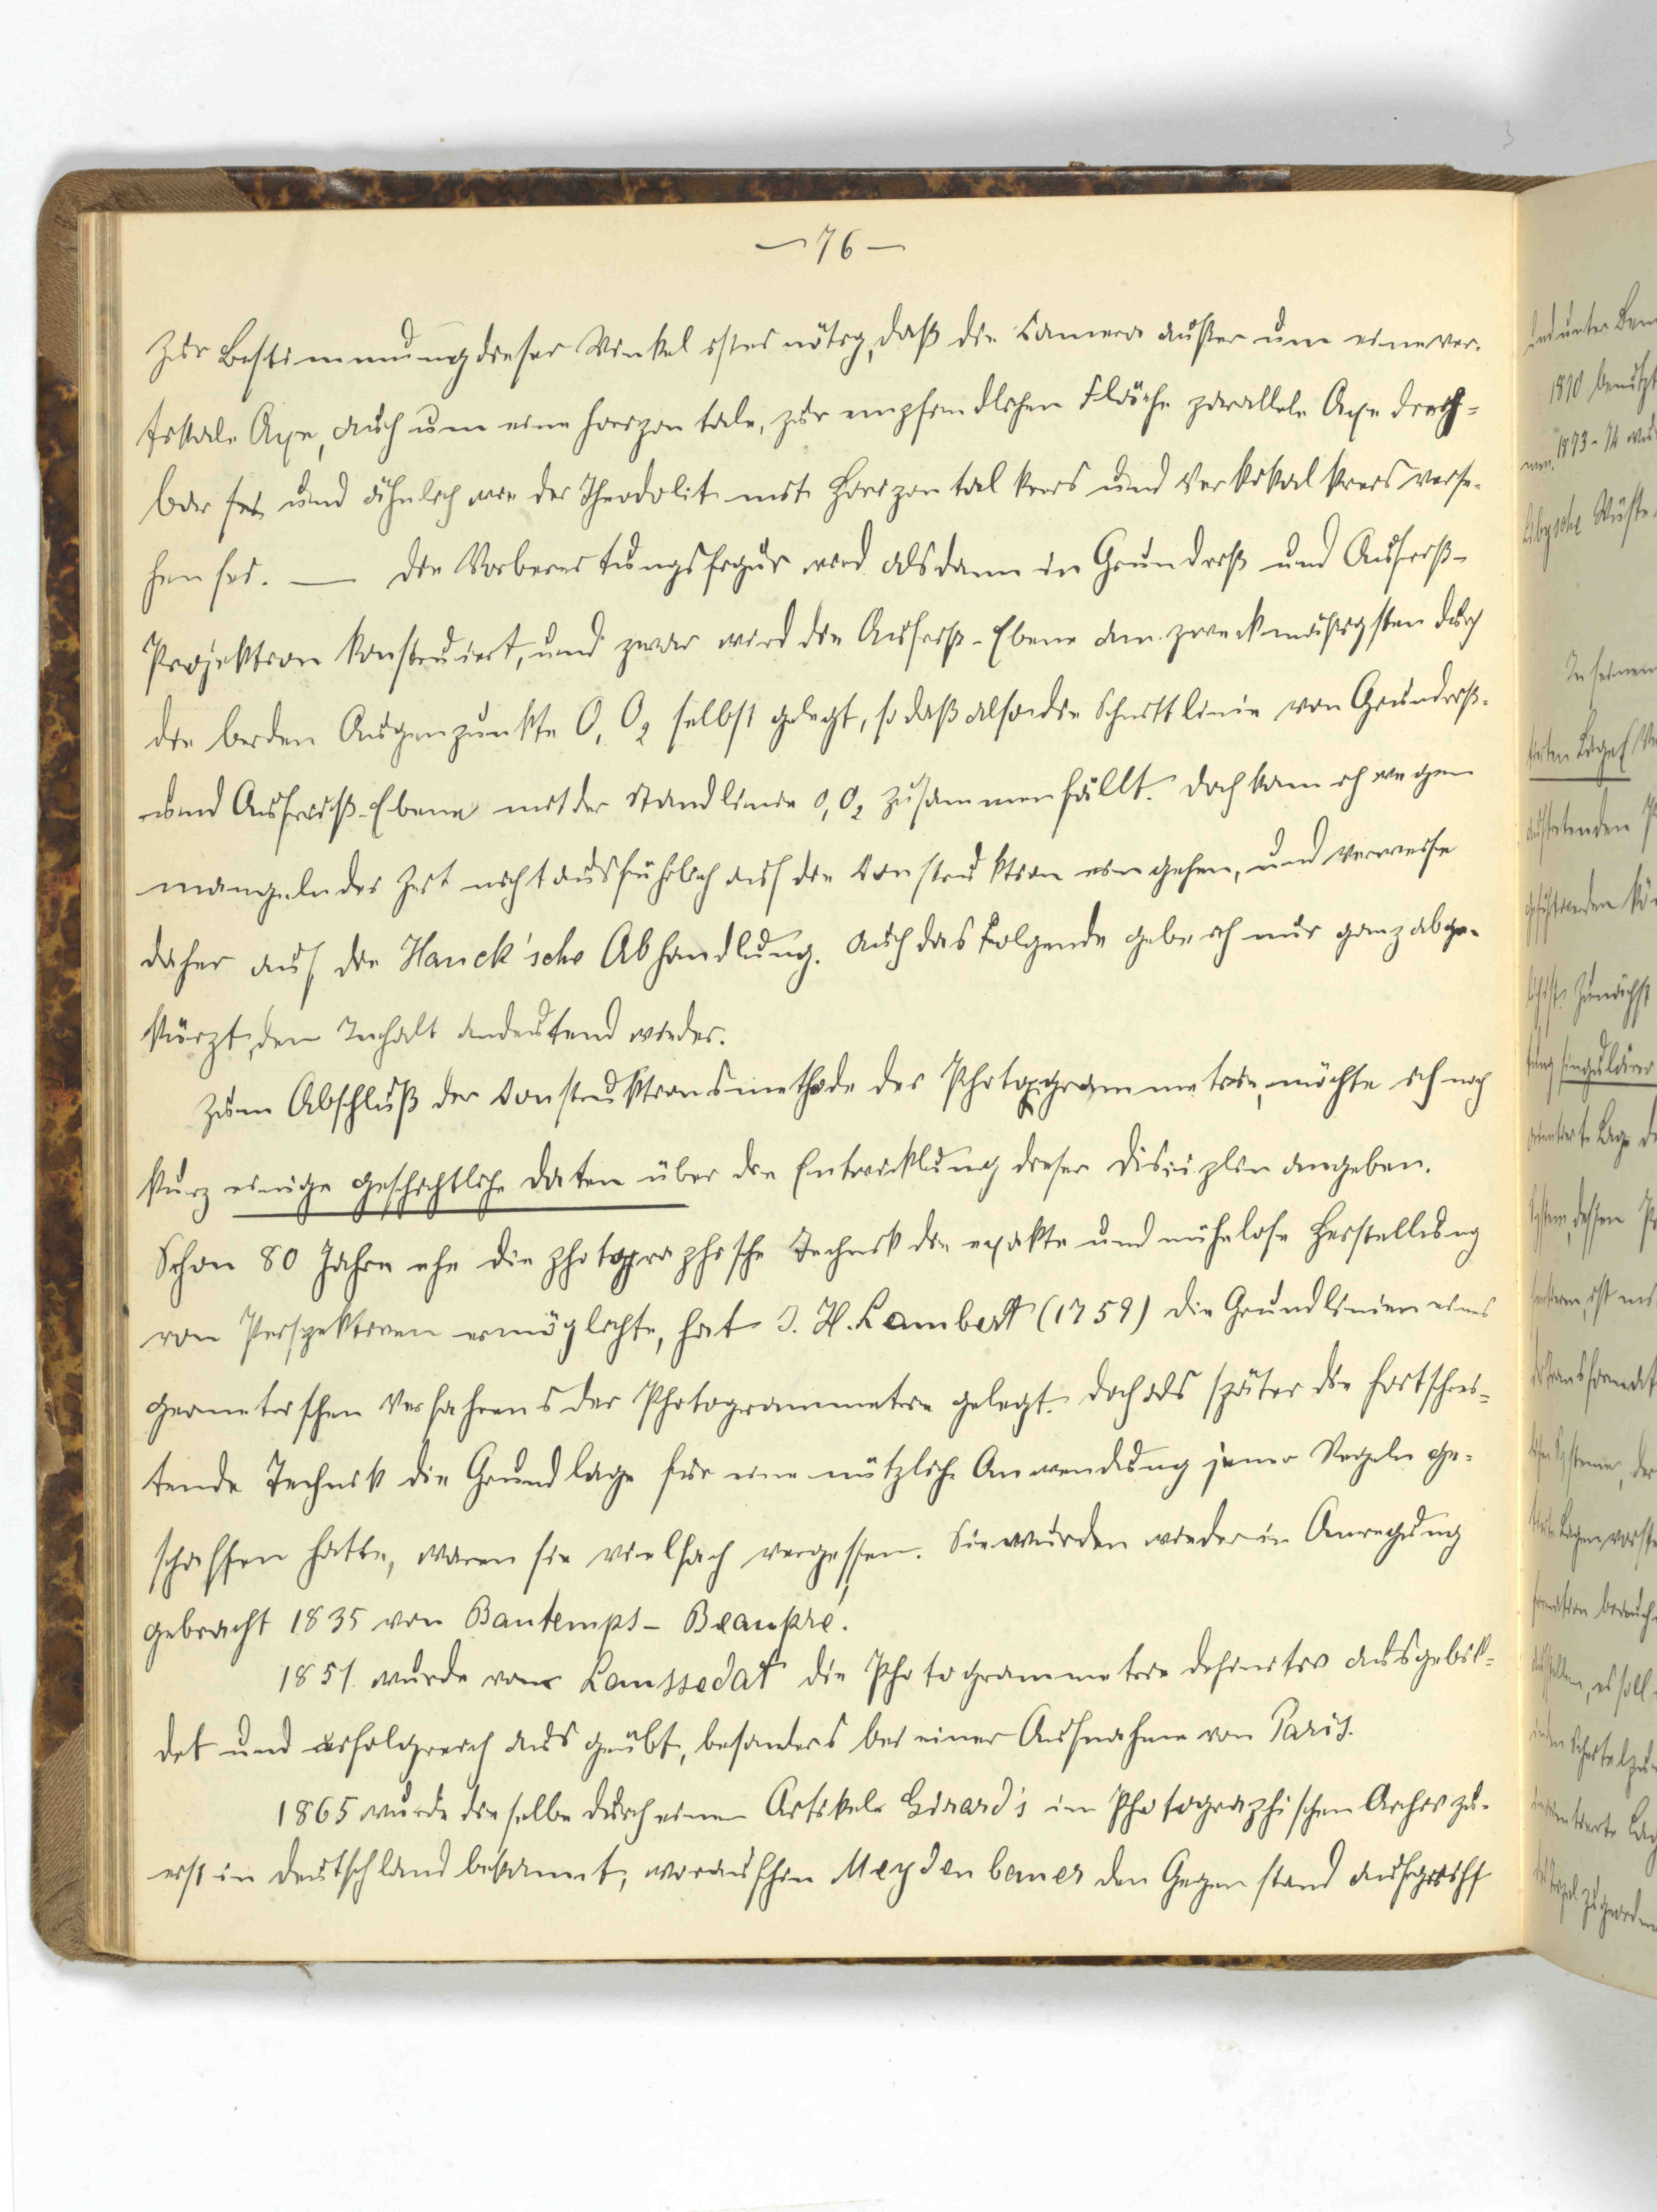 — 76 —
Zur Bestimmung dieser Winkel ist es nötig, daß die Camera außer um eine ver-
tikale Axe, auch um eine horizontale, zur empfindlichen Fläche parallele Axe dreh-
bar sei und ähnlich wie der Theodolit mit Horizontalkreis und Vertikalkreis verse-
hen sei. — Die Vorbereitungsfigur wird alsdann in Grundriß und Aufriß-
Projektion konstruiert, und zwar wird die Aufriß-Ebene am zweckmäßigsten durch
die beiden Augenpunkte O₁ O₂ selbst gelegt, so daß also die Schnittlinie von Grundriß-
und Aufriß-Ebene mit der Standlinie O₁O₂ zusammenfällt. Doch kann ich wegen
mangelnder Zeit nicht ausführlich auf die Konstruktion eingehen, und verweise
daher auf die Hauck'sche Abhandlung. Auch das Folgende gebe ich nur ganz abge-
kürzt, den Inhalt andeutend wieder.
Zum Abschluß der Konstruktionsmethode der Photogrammetrie, möchte ich noch
kurz einige geschichtliche Daten über die Entwicklung dieser Disciplin angeben.
Schon 80 Jahre ehe die photographische Technik die exakte und mühelose Herstellung
von Perspektiven ermöglichte, hat J. H. Lambert (1759) die Grundlinien eines
geometrischen Verfahrens der Photogrammetrie gelegt. Doch als später die fortschrei-
tende Technik die Grundlage für eine nützliche Anwendung jener Regeln ge-
schaffen hatte, waren sie vielfach vergessen. Sie wurden wieder in Anregung
gebracht 1835 von Bautemps-Beaupré.
1851 wurde von Laussedat die Photogrammetrie definitiv ausgebil-
det und erfolgreich ausgeübt, besonders bei einer Aufnahme von Paris.
1865 wurde dieselbe durch einen Artikel Girard's im Photographischen Archiv zu-
erst in Deutschland bekannt, woraufhin Meydenbauer den Gegenstand aufgriff
und unter
1870 benutzt
1873-74
Libysche Wüste
In seinem